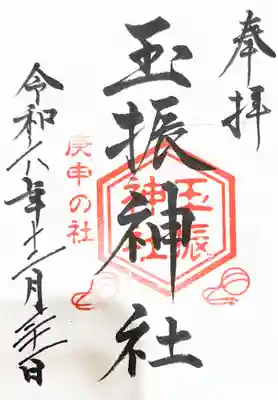 奉拝
玉振神社
玉振
神社
庚申の社
令和六年十二月 日